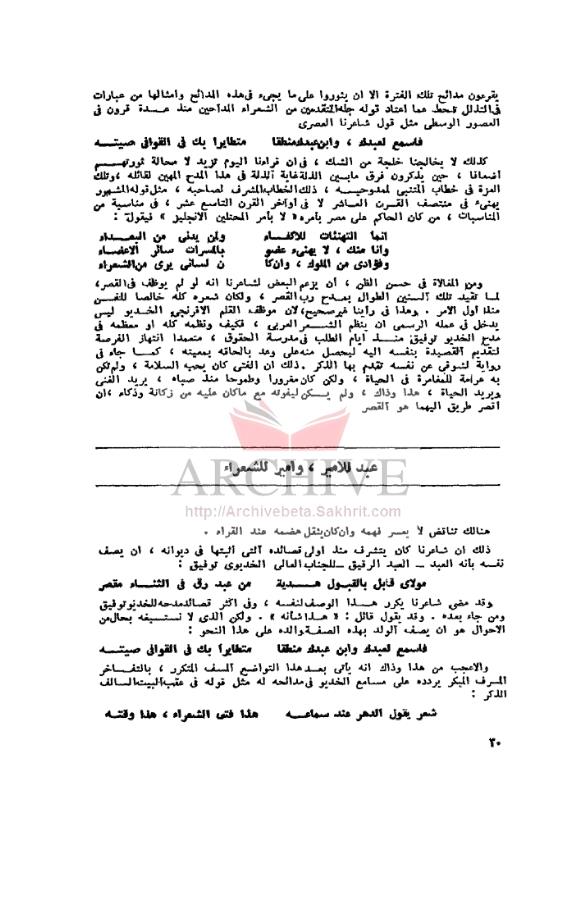 يقرءون مدائح تلك الفترة الا ان يثوروا على ما يجىء فى هذه المدائح وامثالها من عبارات
فى التذلل تحط عما اعتاد قوله جلة المتقدمين من الشعراء المداحين منذ عدة قرون فى
العصور الوسطى مثل قول شاعرنا العصرى
فاسمع لعبدك ، وابن عبدك منطقا متطايرا بك فى القوافى صيتــه
كذلك لا يخالجنا خلجة من الشك ، فى ان قراءنا اليوم تزيد لا محالة ثورتهــم
أضعافا ، حين يذكرون فرق مابين الذلة غاية الذلة فى هذا المدح المهين لقائله ، وتلك
العزة فى خطاب المتنبى لممدوحيــه ، ذلك الخطاب المشرف لصاحبه ، مثل قوله المشهور
يهنىء فى منتصف القرن العاشر لا فى أواخر القرن التاسع عشر ، فى مناسبة من
المناسبات ، من كان الحاكم على مصر بأمره « لا بأمر المحتلين الانجليز » فيقول :
انما التهنئات للأكفـــاء ولمن يدنى من البعــداء
وانا منك ، لا يهنىء عضو بالمسرات سائر الاعضـاء
وفؤادى من الملوك ، وان كا ن لسانى يرى من الشعراء
ومن المغالاة فى حسن الظن ، أن يزعم البعض لشاعرنا انه لو لم يوظف فى القصر،
لما تقيد تلك السنين الطوال بمدح رب القصر ، ولكان شعره كله خالصا للفن
منذ اول الامر . وهذا فى رأينا غير صحيح، لان موظف القلم الافرنجى الخديو ليس
يدخل فى عمله الرسمى ان ينظم الشعر العربى ، فكيف ونظمه كله او معظمه فى
مدح الخديو توفيق منــذ أيام الطلب فى مدرسة الحقوق ، متعمدا انتهاز الفرصة
لتقديم القصيدة بنفسه اليه ليحصل منه على وعد بالحاقه بمعيته ، كمــا جاء فى
رواية لشوقى عن نفسه تقدم بها الذكر . ذلك ان الفتى كان يحب السلامة ، ولم تكن
به عرامة للمغامرة فى الحياة ، ولكن كان مغرورا وطموحا منذ صباه ، يريد الغنى
ويريد الحياة ، هذا وذاك ، ولم يــكن ليفوته مع ماكان عليه من زكانة وذكاء ، ان
أقصر طريق اليهما هو القصر
عبد للأمير ، وأمير للشعراء
ARCHIVE
http://Archivebeta.Sakhrit.com
هنالك تناقض لا يعسر فهمه وان كان يثقل هضمه عند القراء .
ذلك ان شاعرنا كان يتشرف منذ اولى قصائده التى اثبتها فى ديوانه ، ان يصف
نفسه بأنه العبد ــ العبد الرقيق ــ للجناب العالى الخديوى توفيق :
مولاى قابل بالقبول هــدية من عبد رق فى الثنــاء مقصر
وقد مضى شاعرنا يكرر هــذا الوصف لنفسه ، وفى اكثر قصائد مدحه للخديو توفيق
ومن جاء بعده . وقد يقول قائل : « هــذا شأنه » . ولكن الذى لا نستسيغه بحال من
الاحوال هو ان يصف الولد بهذه الصفة والده على هذا النحو :
فاسمع لعبدك وابن عبدك منطقا متطايرا بك فى القوافى صيتــه
والاعجب من هذا وذاك انه يأتى بعد هذا التواضع المسف المتكرر ، بالتفــاخر
المسرف المبكر يردده على مسامع الخديو فى مدائحه له مثل قوله فى عقب البيت السالف
الذكر :
شعر يقول الدهر عند سماعــه هذا فتى الشعراء ، هذا وقتــه
٣٠